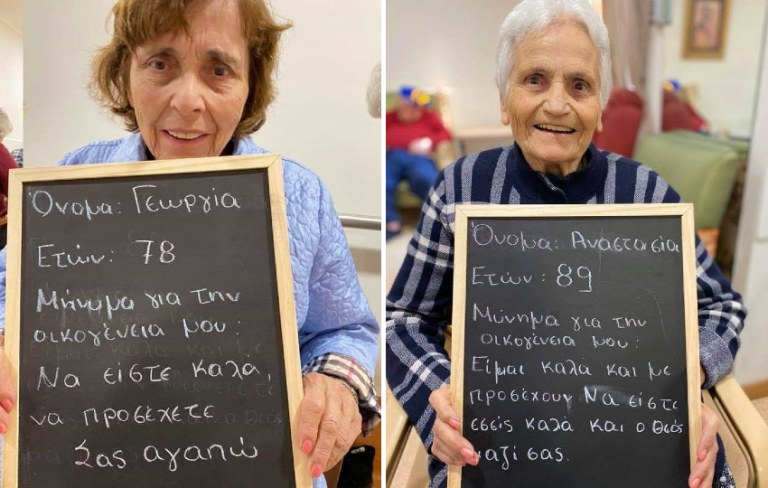 Όνομα: Γεωργία
Ετών: 78
Μήνυμα για την
οικογένεια μου:
Να είστε καλά,
να προσέχετε
Σας αγαπώ
Όνομα: Αναστασία
Ετών: 89
Μύνημα για την
οικογένεια μου:
Είμαι καλά και με
προσέχουν Να είστε
εσείς καλά και ο Θεός
μαζί σας.